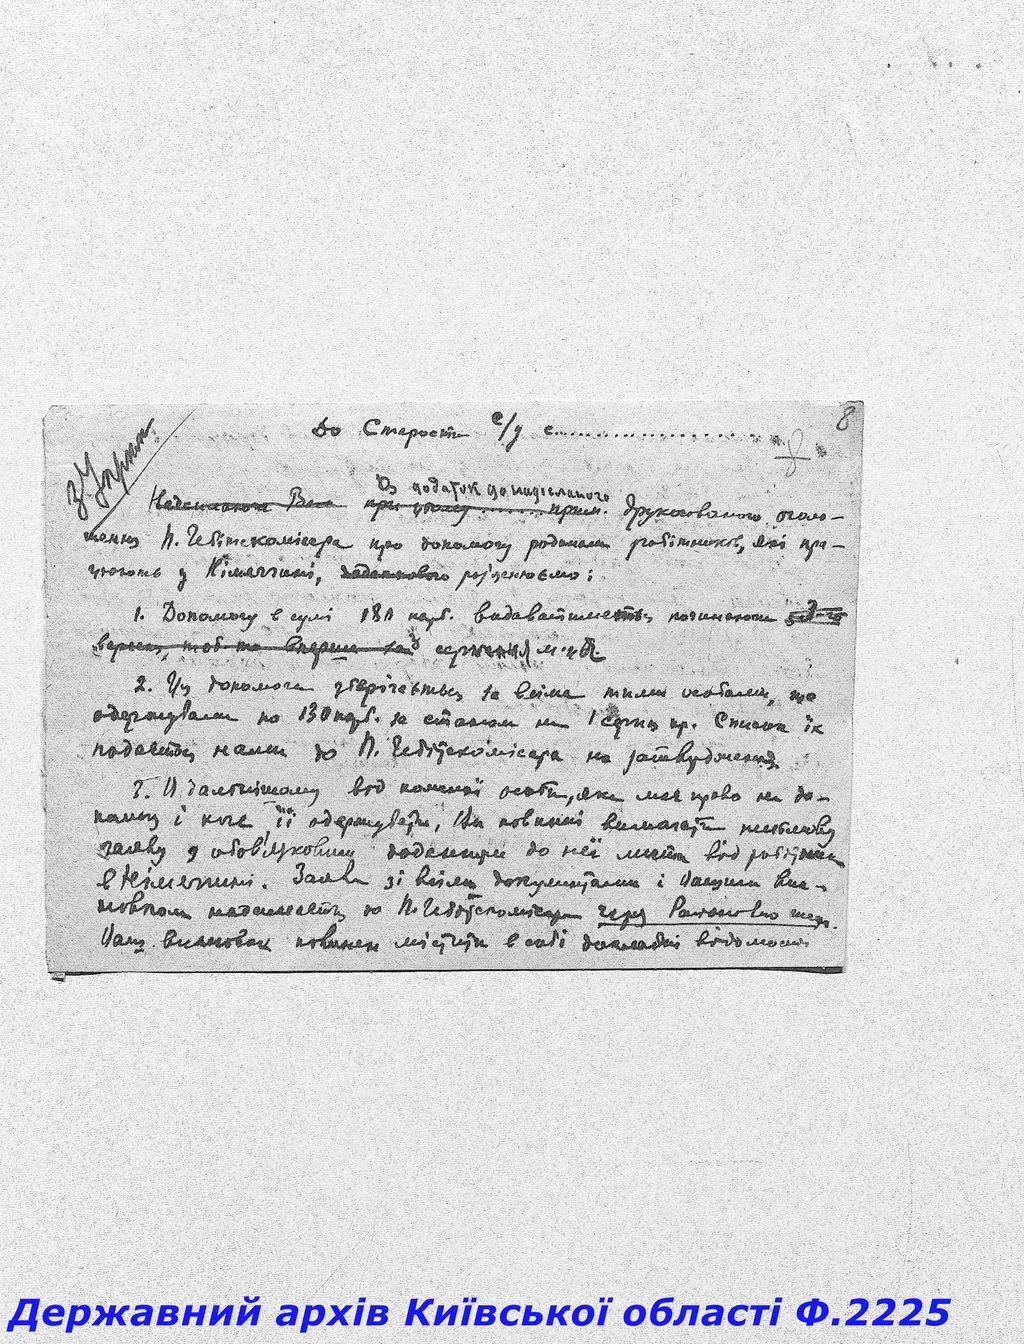 8
До Старости с/у с.......................
З Укрм.
В додаток до надісланого
Надсилаючи Вам при цьому ........ прим. друкованого оголо-
шення П. Гебітскомісара про допомогу родинам робітників, які пра-
цюють у Німеччині, додатково роз'яснюємо:
1. Допомогу в сумі 130 карб. видаватиметься починаючи з
вересня, щоб то вперше за серпня м-ць.
2. Ця допомога зберігається за всіма тими особами, що
одержували по 130 карб. за станом на 1 серпня ц.р. Списки їх
подається нами до П. Гебітскомісара на затвердження.
3. У дальнішому від кожної особи, яка має право на до-
помогу і хоче її одержувати, Ви повинні вимагати письмову
заяву з обов'язковим доданням до неї листа від робітника
в Німеччині. Заява зі всіма документами і Вашим вис-
новком надсилається до П. Гебітскомісара через Районову
Ваш висновок повинен містити в собі докладні відомості
Державний архів Київської області Ф.2225